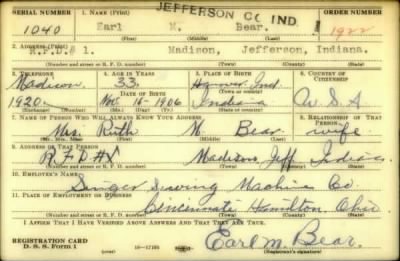 SERIAL NUMBER 1. NAME (Print) JEFFERSON CO IND. ORDER NUMBER
1040 Earl M. Bear. 1922
(First) (Middle) (Last)
2. ADDRESS (Print)
R.F.D.# 1. Madison, Jefferson, Indiana.
(Number and street or R. F. D. number) (Town) (County) (State)
3. TELEPHONE 4. AGE IN YEARS 5. PLACE OF BIRTH 6. COUNTRY OF CITIZENSHIP
Madison 33. Hanover, Ind.
DATE OF BIRTH (Town or county)
1920. Nov. 16-1906 Indiana U.S.A.
(Exchange) (Number) (Mo.) (Day) (Yr.) (State or country)
7. NAME OF PERSON WHO WILL ALWAYS KNOW YOUR ADDRESS 8. RELATIONSHIP OF THAT PERSON
Mrs. Ruth M. Bear wife
(Mr., Mrs., Miss) (First) (Middle) (Last)
9. ADDRESS OF THAT PERSON
R.F.D #1 Madison, Jeff Indiana.
(Number and street or R. F. D. number) (Town) (County) (State)
10. EMPLOYER'S NAME
Singer Sewing Machine Co
11. PLACE OF EMPLOYMENT OR BUSINESS
Cincinnati Hamilton, Ohio
(Number and street or R. F. D. number) (Town) (County) (State)
I AFFIRM THAT I HAVE VERIFIED ABOVE ANSWERS AND THAT THEY ARE TRUE.
REGISTRATION CARD
D. S. S. Form 1 16-17105 Earl M. Bear.
(Registrant's signature)